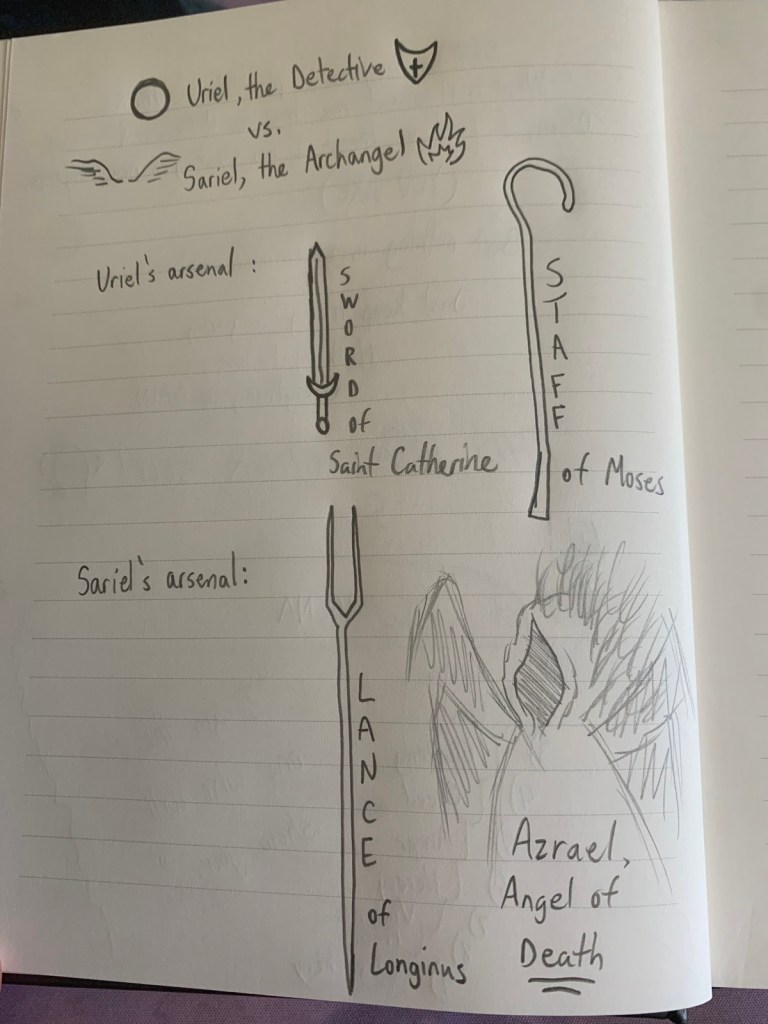 Uriel, the Detective
vs.
Sariel, the Archangel
Uriel's arsenal :
SWORD
of
Saint Catherine
STAFF
of Moses
Sariel's arsenal:
LANCE
of
Longinus
Azrael,
Angel of
Death